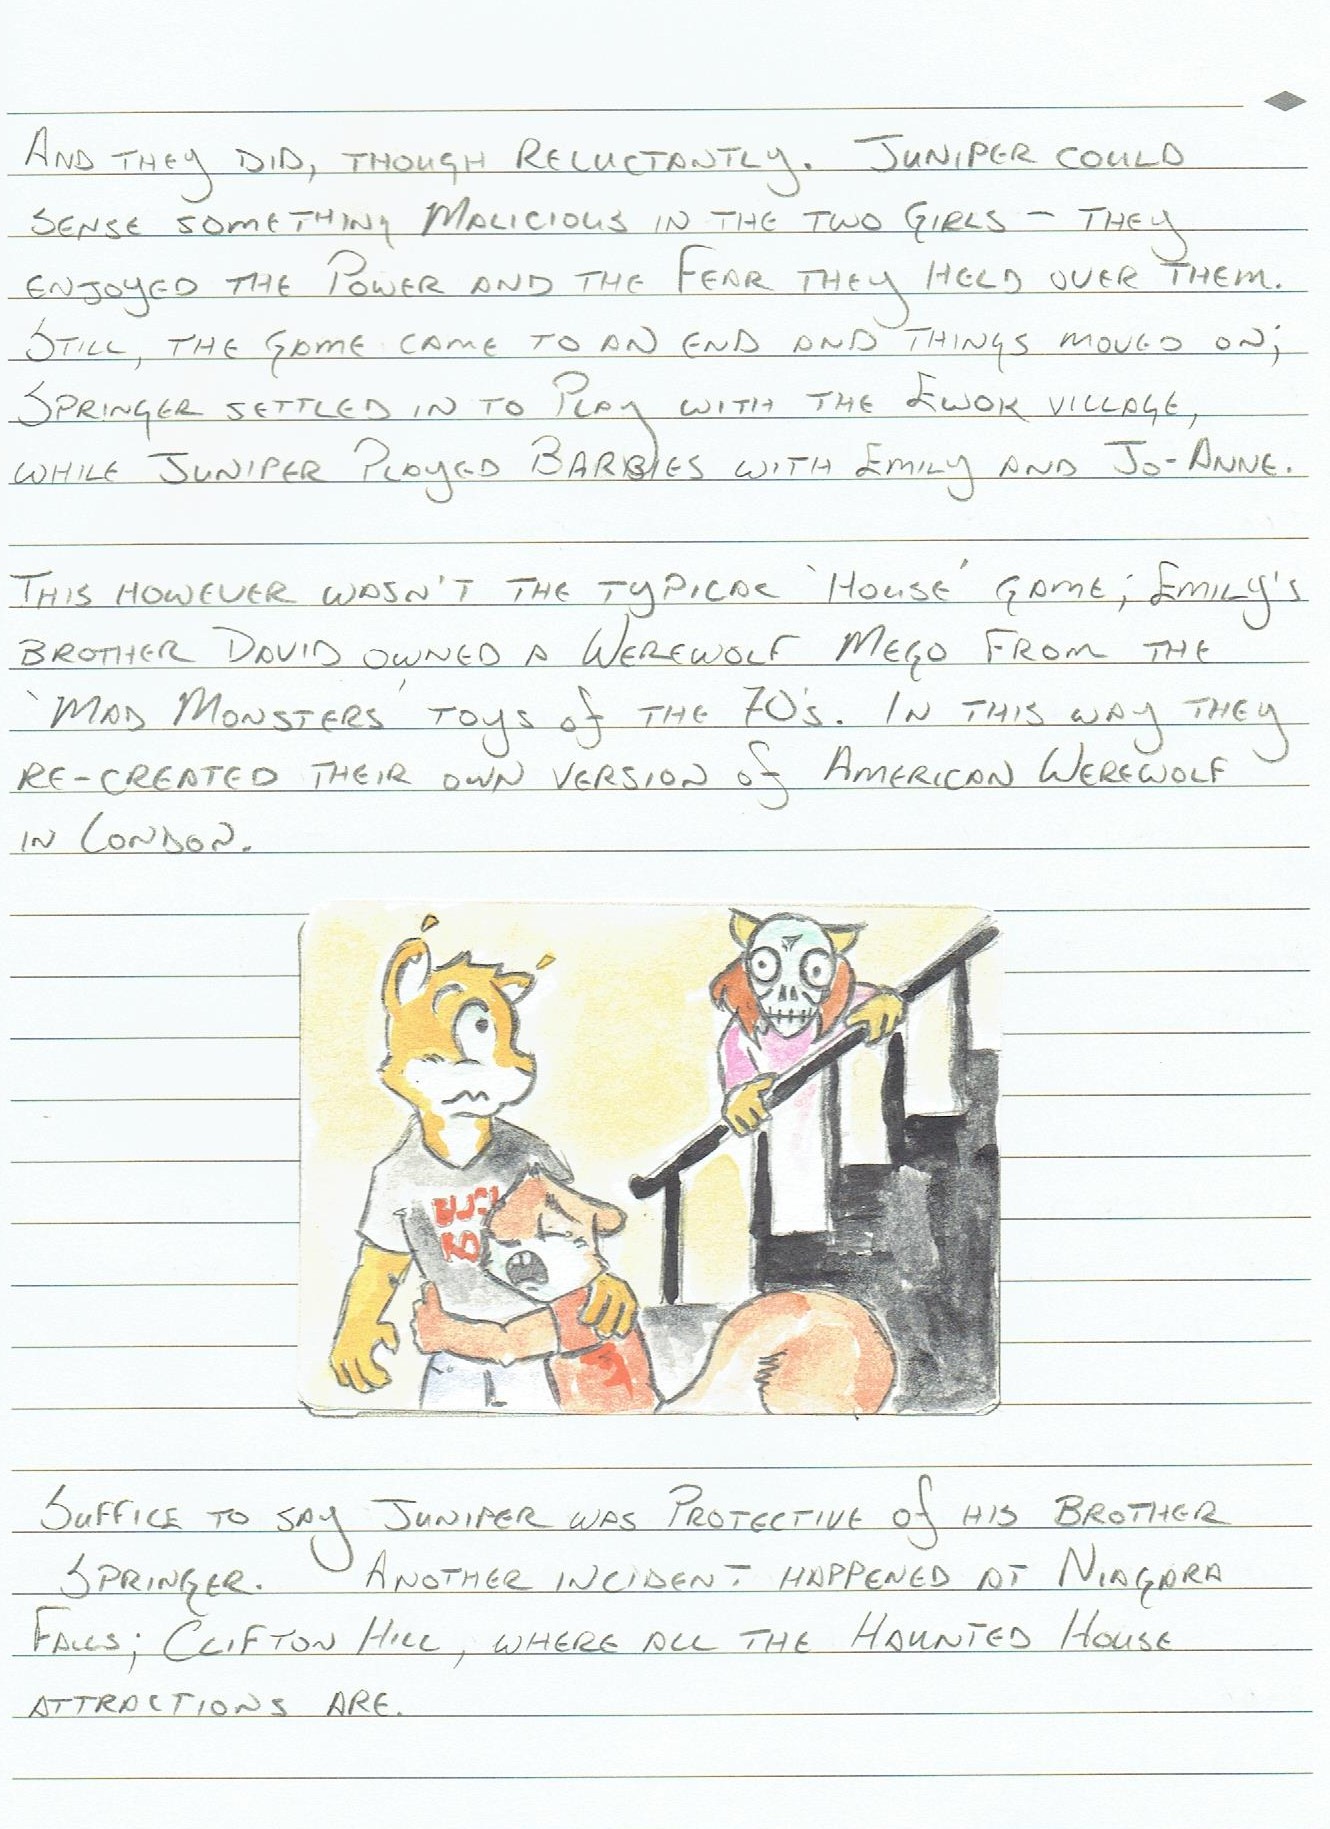 And they did, though reluctantly. Juniper could
sense something malicious in the two girls – they
enjoyed the power and the fear they held over them.
Still, the game came to an end and things moved on;
Springer settled in to play with the Ewok village,
while Juniper played Barbies with Emily and Jo-Anne.
This however wasn't the typical 'House' game; Emily's
brother David owned a Werewolf Mego from the
'Mad Monsters' toys of the 70's. In this way they
re-created their own version of American Werewolf
in London.
Suffice to say Juniper was protective of his brother
Springer. Another incident happened at Niagara
Falls; Clifton Hill, where all the Haunted House
attractions are.